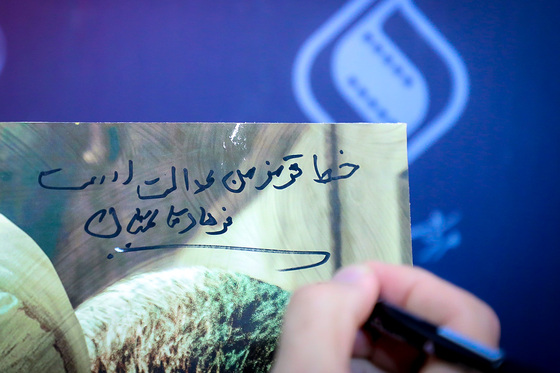 خط قرمز من عدالت است
فرهاد قائمیان